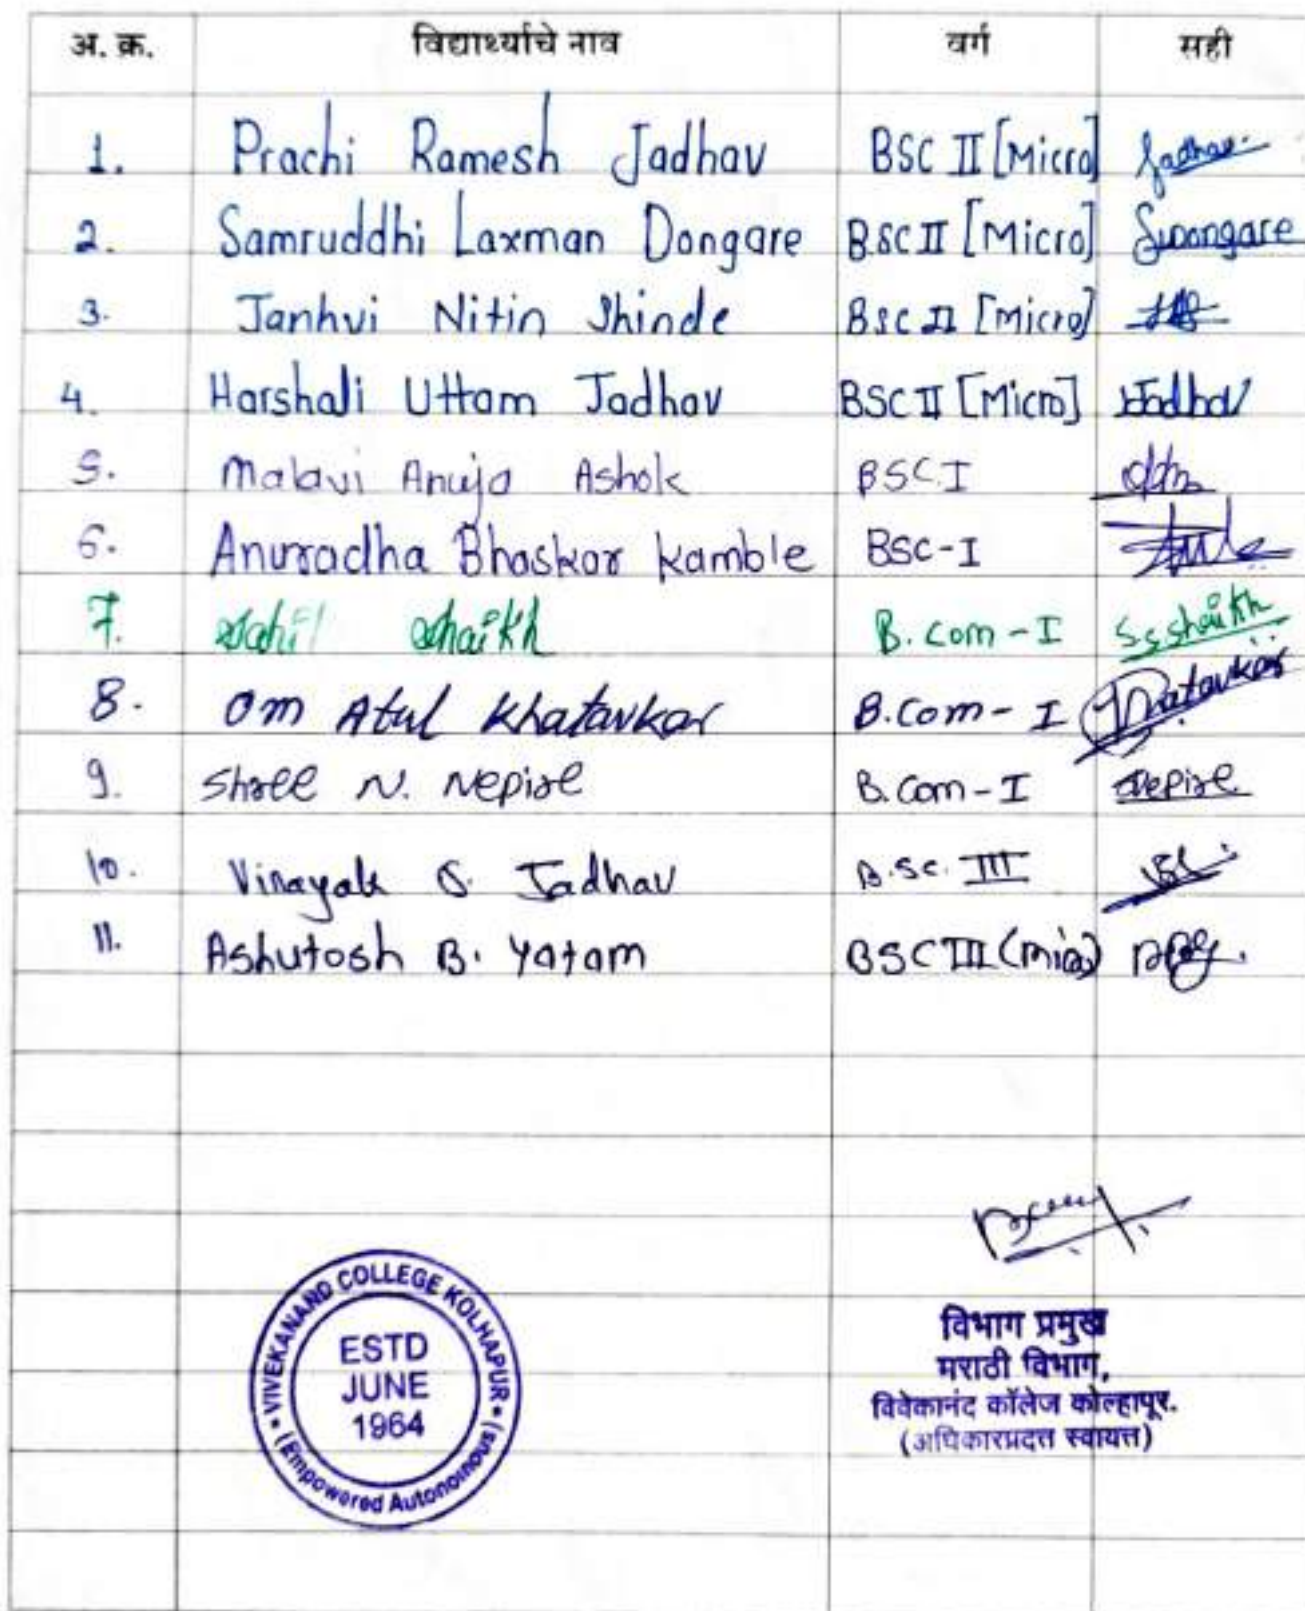 अ. क्र. विद्यार्थ्याचे नाव वर्ग सही
1. Prachi Ramesh Jadhav BSC II [Micro] Jadhav
2. Samruddhi Laxman Dongare B.SC II [Micro] SLDongare
3. Janhvi Nitin Shinde BSC II [Micro]
4. Harshali Uttam Jadhav BSC II [Micro] HJadhav
5. Malavi Anuja Ashok BSC I
6. Anuradha Bhaskar Kamble BSC-I
7. Sahil Shaikh B.com-I SsShaikh
8. Om Atul Khatavkar B.Com-I Khatavkar
9. Shree N. Nepire B.Com-I Nepire
10. Vinayak S. Jadhav B.Sc. III
11. Ashutosh B. Yatam BSC III (Mic)
VIVEKANAND COLLEGE KOLHAPUR
ESTD
JUNE
1964
(Empowered Autonomous)
विभाग प्रमुख
मराठी विभाग,
विवेकानंद कॉलेज कोल्हापूर.
(अधिकारप्रदत्त स्वायत्त)